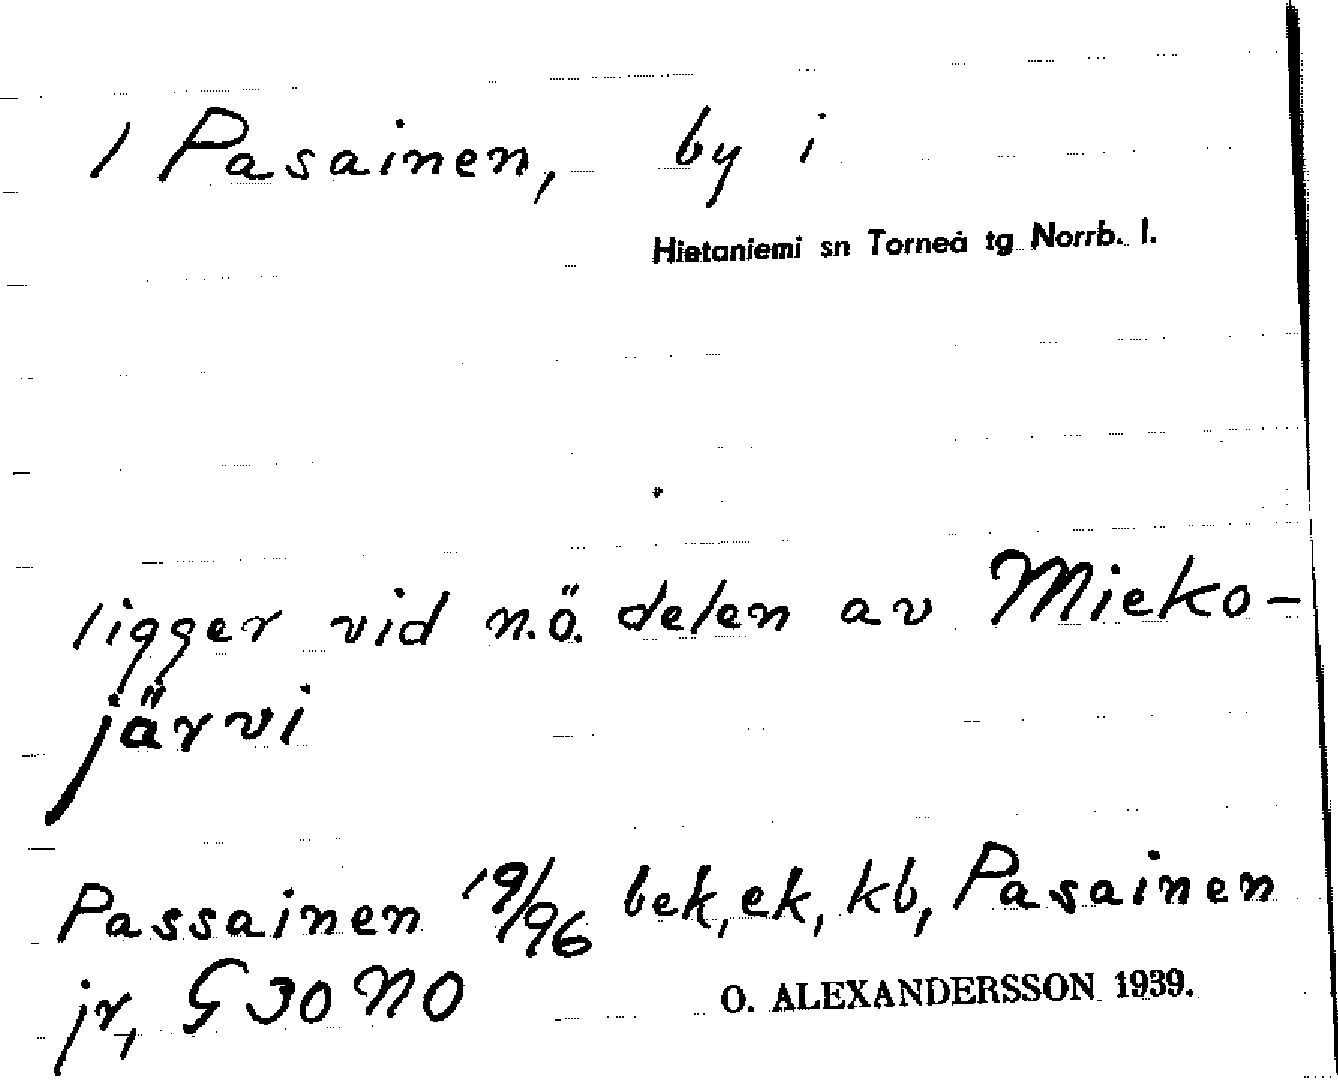 / Pasainen, by i
Hietaniemi sn Torneå tg Norrb. l.
ligger vid n.ö. delen av Mieko-
järvi
Passainen 19/96 bek, ek, kb, Pasainen
jr, G 30 NO
O. ALEXANDERSSON 1939.